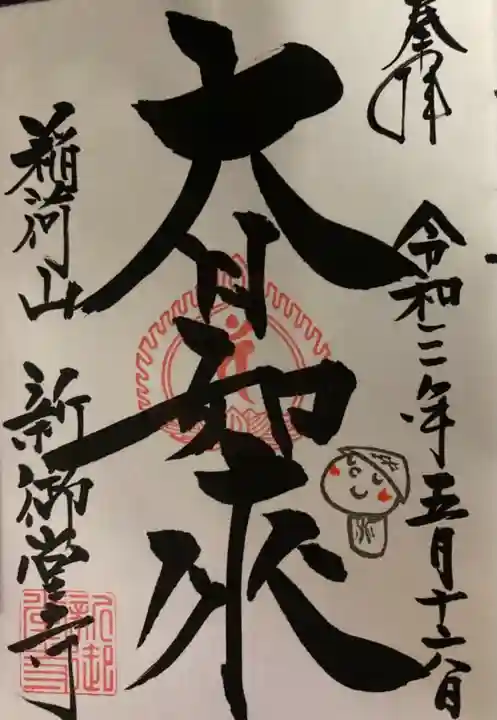 奉拝
令和三年五月十六日
大日如来
稲荷山 新御堂寺
新御堂寺